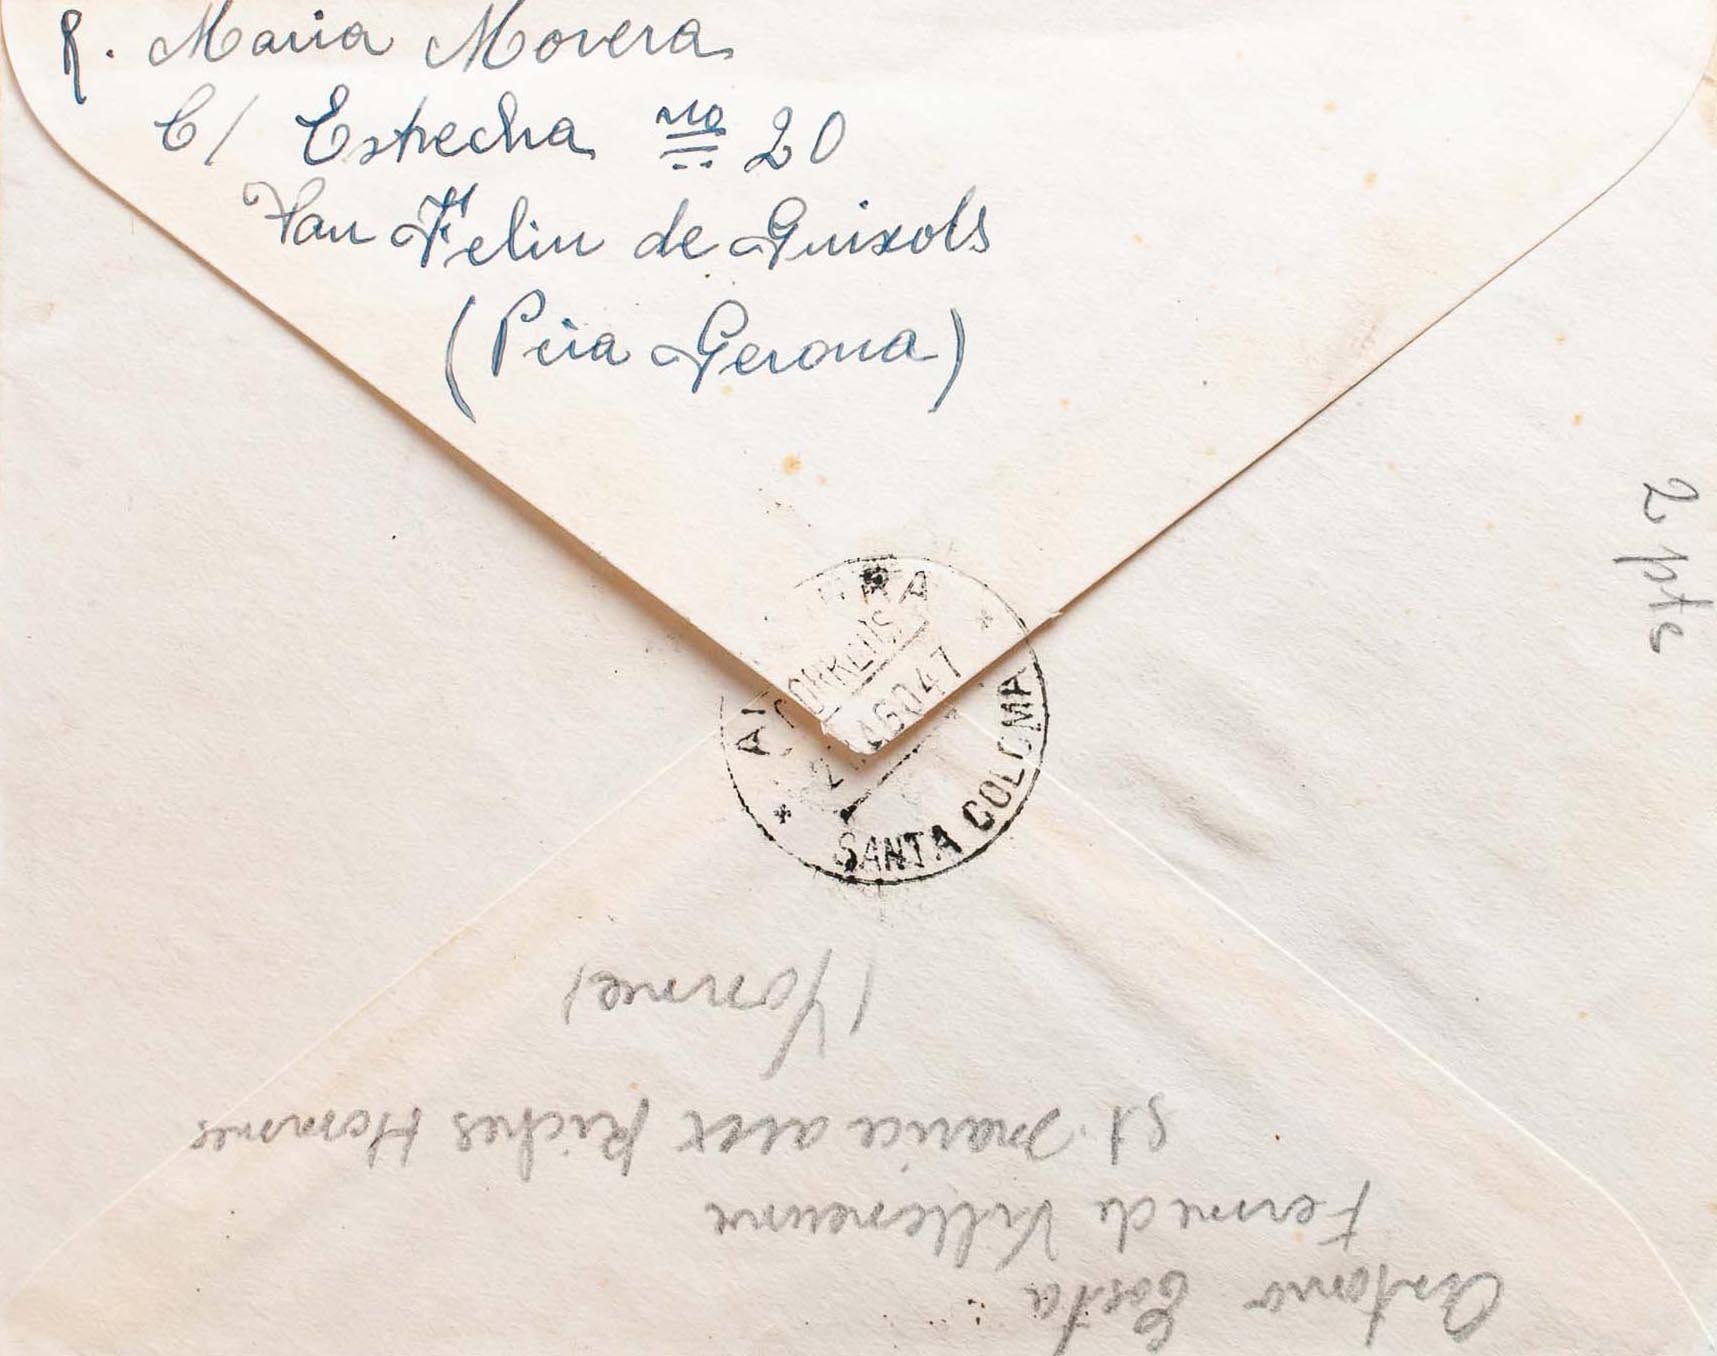 R. Maria Movera
C/ Estrecha no 20
San Feliu de Guixols
(Pcia Gerona)
2 pts
CORREOS
2 AGO 47
SANTA COLOMA
Antonio Costa
Ferme de Villeneuve
St. Marie aux Riches Hommes
(Yonne)